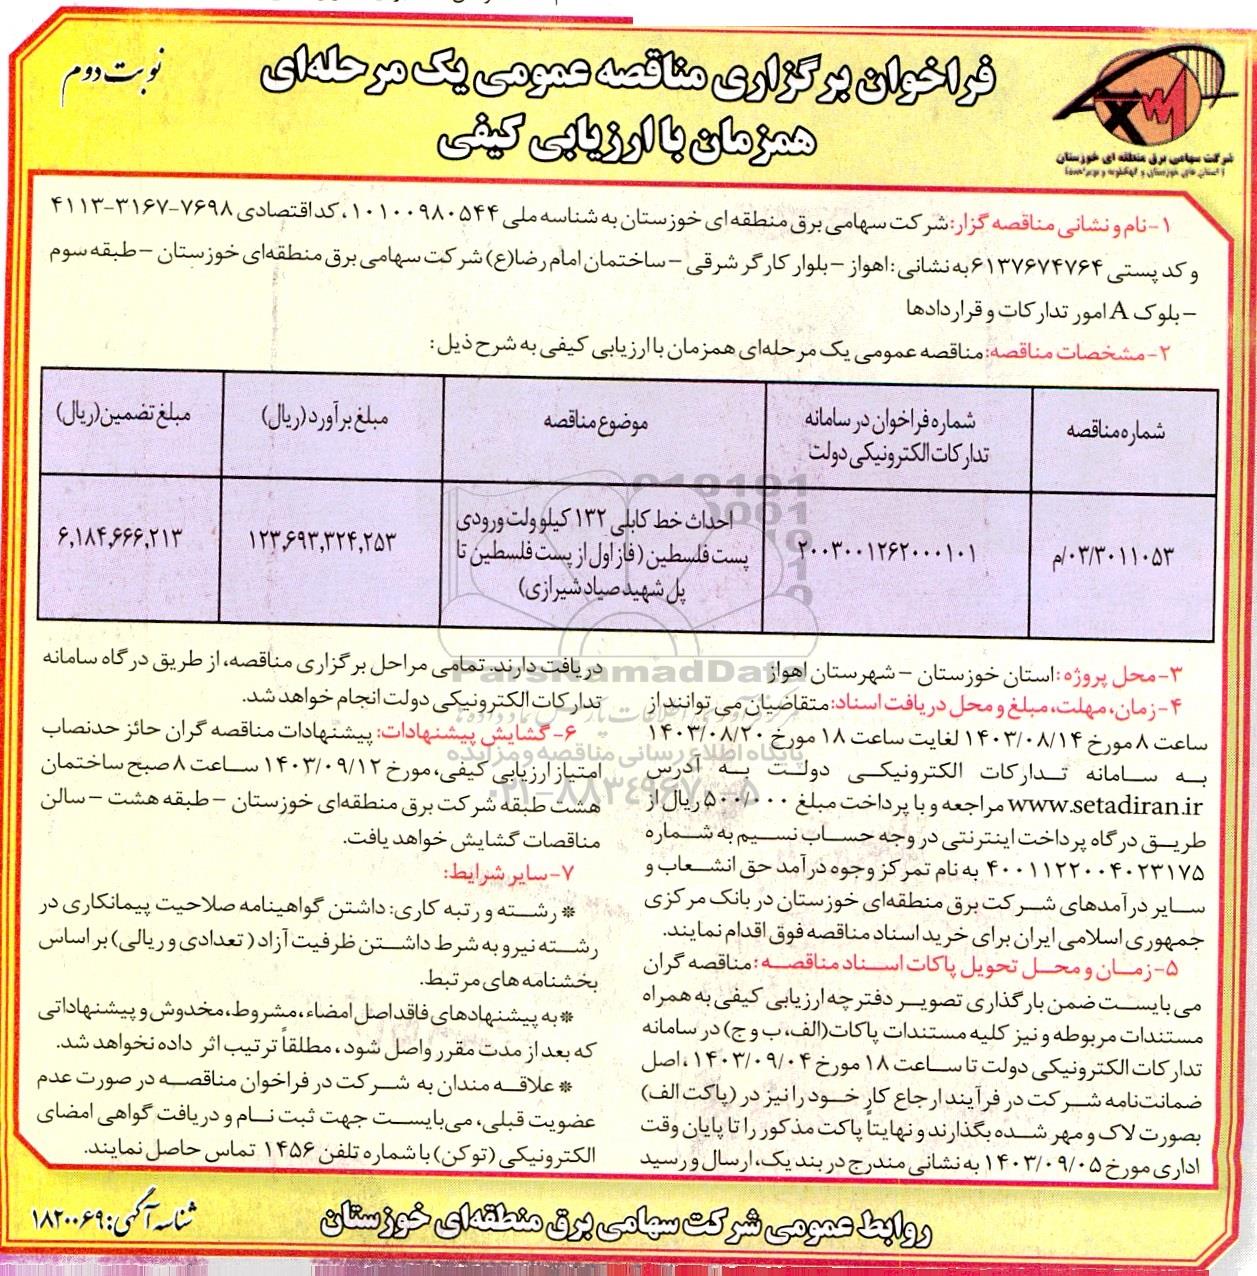 فراخوان برگزاری مناقصه عمومی یک مرحله‌ای
همزمان با ارزیابی کیفی
نوبت دوم
شرکت سهامی برق منطقه ای خوزستان
۱-نام و نشانی مناقصه گزار: شرکت سهامی برق منطقه ای خوزستان به شناسه ملی ۱۰۱۰۰۹۸۰۵۴۴، کد اقتصادی ۷۶۹۸-۳۱۶۷-۴۱۱۳
و کد پستی ۶۱۳۷۶۷۴۷۶۴ به نشانی: اهواز – بلوار کارگر شرقی – ساختمان امام رضا(ع) شرکت سهامی برق منطقه‌ای خوزستان – طبقه سوم
– بلوک A امور تدارکات و قراردادها
۲-مشخصات مناقصه: مناقصه عمومی یک مرحله‌ای همزمان با ارزیابی کیفی به شرح ذیل:
شماره مناقصه
شماره فراخوان در سامانه
تدارکات الکترونیکی دولت
موضوع مناقصه
مبلغ برآورد (ریال)
مبلغ تضمین (ریال)
۰۳/۳۰۱۱۰۵۳/م
۲۰۰۳۰۰۱۲۶۲۰۰۰۱۰۱
احداث خط کابلی ۱۳۲ کیلو ولت ورودی
پست فلسطین (فاز اول از پست فلسطین تا
پل شهید صیاد شیرازی)
۱۲۳,۶۹۳,۳۲۴,۲۵۳
۶,۱۸۴,۶۶۶,۲۱۳
۳-محل پروژه: استان خوزستان – شهرستان اهواز
۴-زمان، مهلت، مبلغ و محل دریافت اسناد: متقاضیان می توانند از
ساعت ۸ مورخ ۱۴۰۳/۰۸/۱۴ لغایت ساعت ۱۸ مورخ ۱۴۰۳/۰۸/۲۰
به سامانه تدارکات الکترونیکی دولت به آدرس
www.setadiran.ir مراجعه و با پرداخت مبلغ ۵۰۰/۰۰۰ ریال از
طریق درگاه پرداخت اینترنتی در وجه حساب نسیم به شماره
۴۰۰۱۱۲۲۰۰۴۰۲۳۱۷۵ به نام تمرکز وجوه درآمد حق انشعاب و
سایر درآمدهای شرکت برق منطقه‌ای خوزستان در بانک مرکزی
جمهوری اسلامی ایران برای خرید اسناد مناقصه فوق اقدام نمایند.
۵-زمان و محل تحویل پاکات اسناد مناقصه: مناقصه گران
می بایست ضمن بارگذاری تصویر دفترچه ارزیابی کیفی به همراه
مستندات مربوطه و نیز کلیه مستندات پاکات (الف، ب و ج) در سامانه
تدارکات الکترونیکی دولت تا ساعت ۱۸ مورخ ۱۴۰۳/۰۹/۰۴، اصل
ضمانت‌نامه شرکت در فرآیند ارجاع کار خود را نیز در (پاکت الف)
بصورت لاک و مهر شده بگذارند و نهایتاً پاکت مذکور را تا پایان وقت
اداری مورخ ۱۴۰۳/۰۹/۰۵ به نشانی مندرج در بند یک، ارسال و رسید
دریافت دارند. تمامی مراحل برگزاری مناقصه، از طریق درگاه سامانه
تدارکات الکترونیکی دولت انجام خواهد شد.
۶-گشایش پیشنهادات: پیشنهادات مناقصه گران حائز حدنصاب
امتیاز ارزیابی کیفی، مورخ ۱۴۰۳/۰۹/۱۲ ساعت ۸ صبح ساختمان
هشت طبقه شرکت برق منطقه‌ای خوزستان – طبقه هشت – سالن
مناقصات گشایش خواهد یافت.
۷-سایر شرایط:
* رشته و رتبه کاری: داشتن گواهینامه صلاحیت پیمانکاری در
رشته نیرو به شرط داشتن ظرفیت آزاد (تعدادی و ریالی) بر اساس
بخشنامه های مرتبط.
* به پیشنهادهای فاقد اصل امضاء، مشروط، مخدوش و پیشنهاداتی
که بعد از مدت مقرر واصل شود، مطلقاً ترتیب اثر داده نخواهد شد.
* علاقه مندان به شرکت در فراخوان مناقصه در صورت عدم
عضویت قبلی، می‌بایست جهت ثبت نام و دریافت گواهی امضای
الکترونیکی (توکن) با شماره تلفن ۱۴۵۶ تماس حاصل نمایند.
روابط عمومی شرکت سهامی برق منطقه‌ای خوزستان
شناسه آگهی: ۱۸۲۰۰۶۹
ParsNamadData
پایگاه اطلاع رسانی مناقصه و مزایده
۰۲۱-۸۸۳۴۹۶۷۰-۵